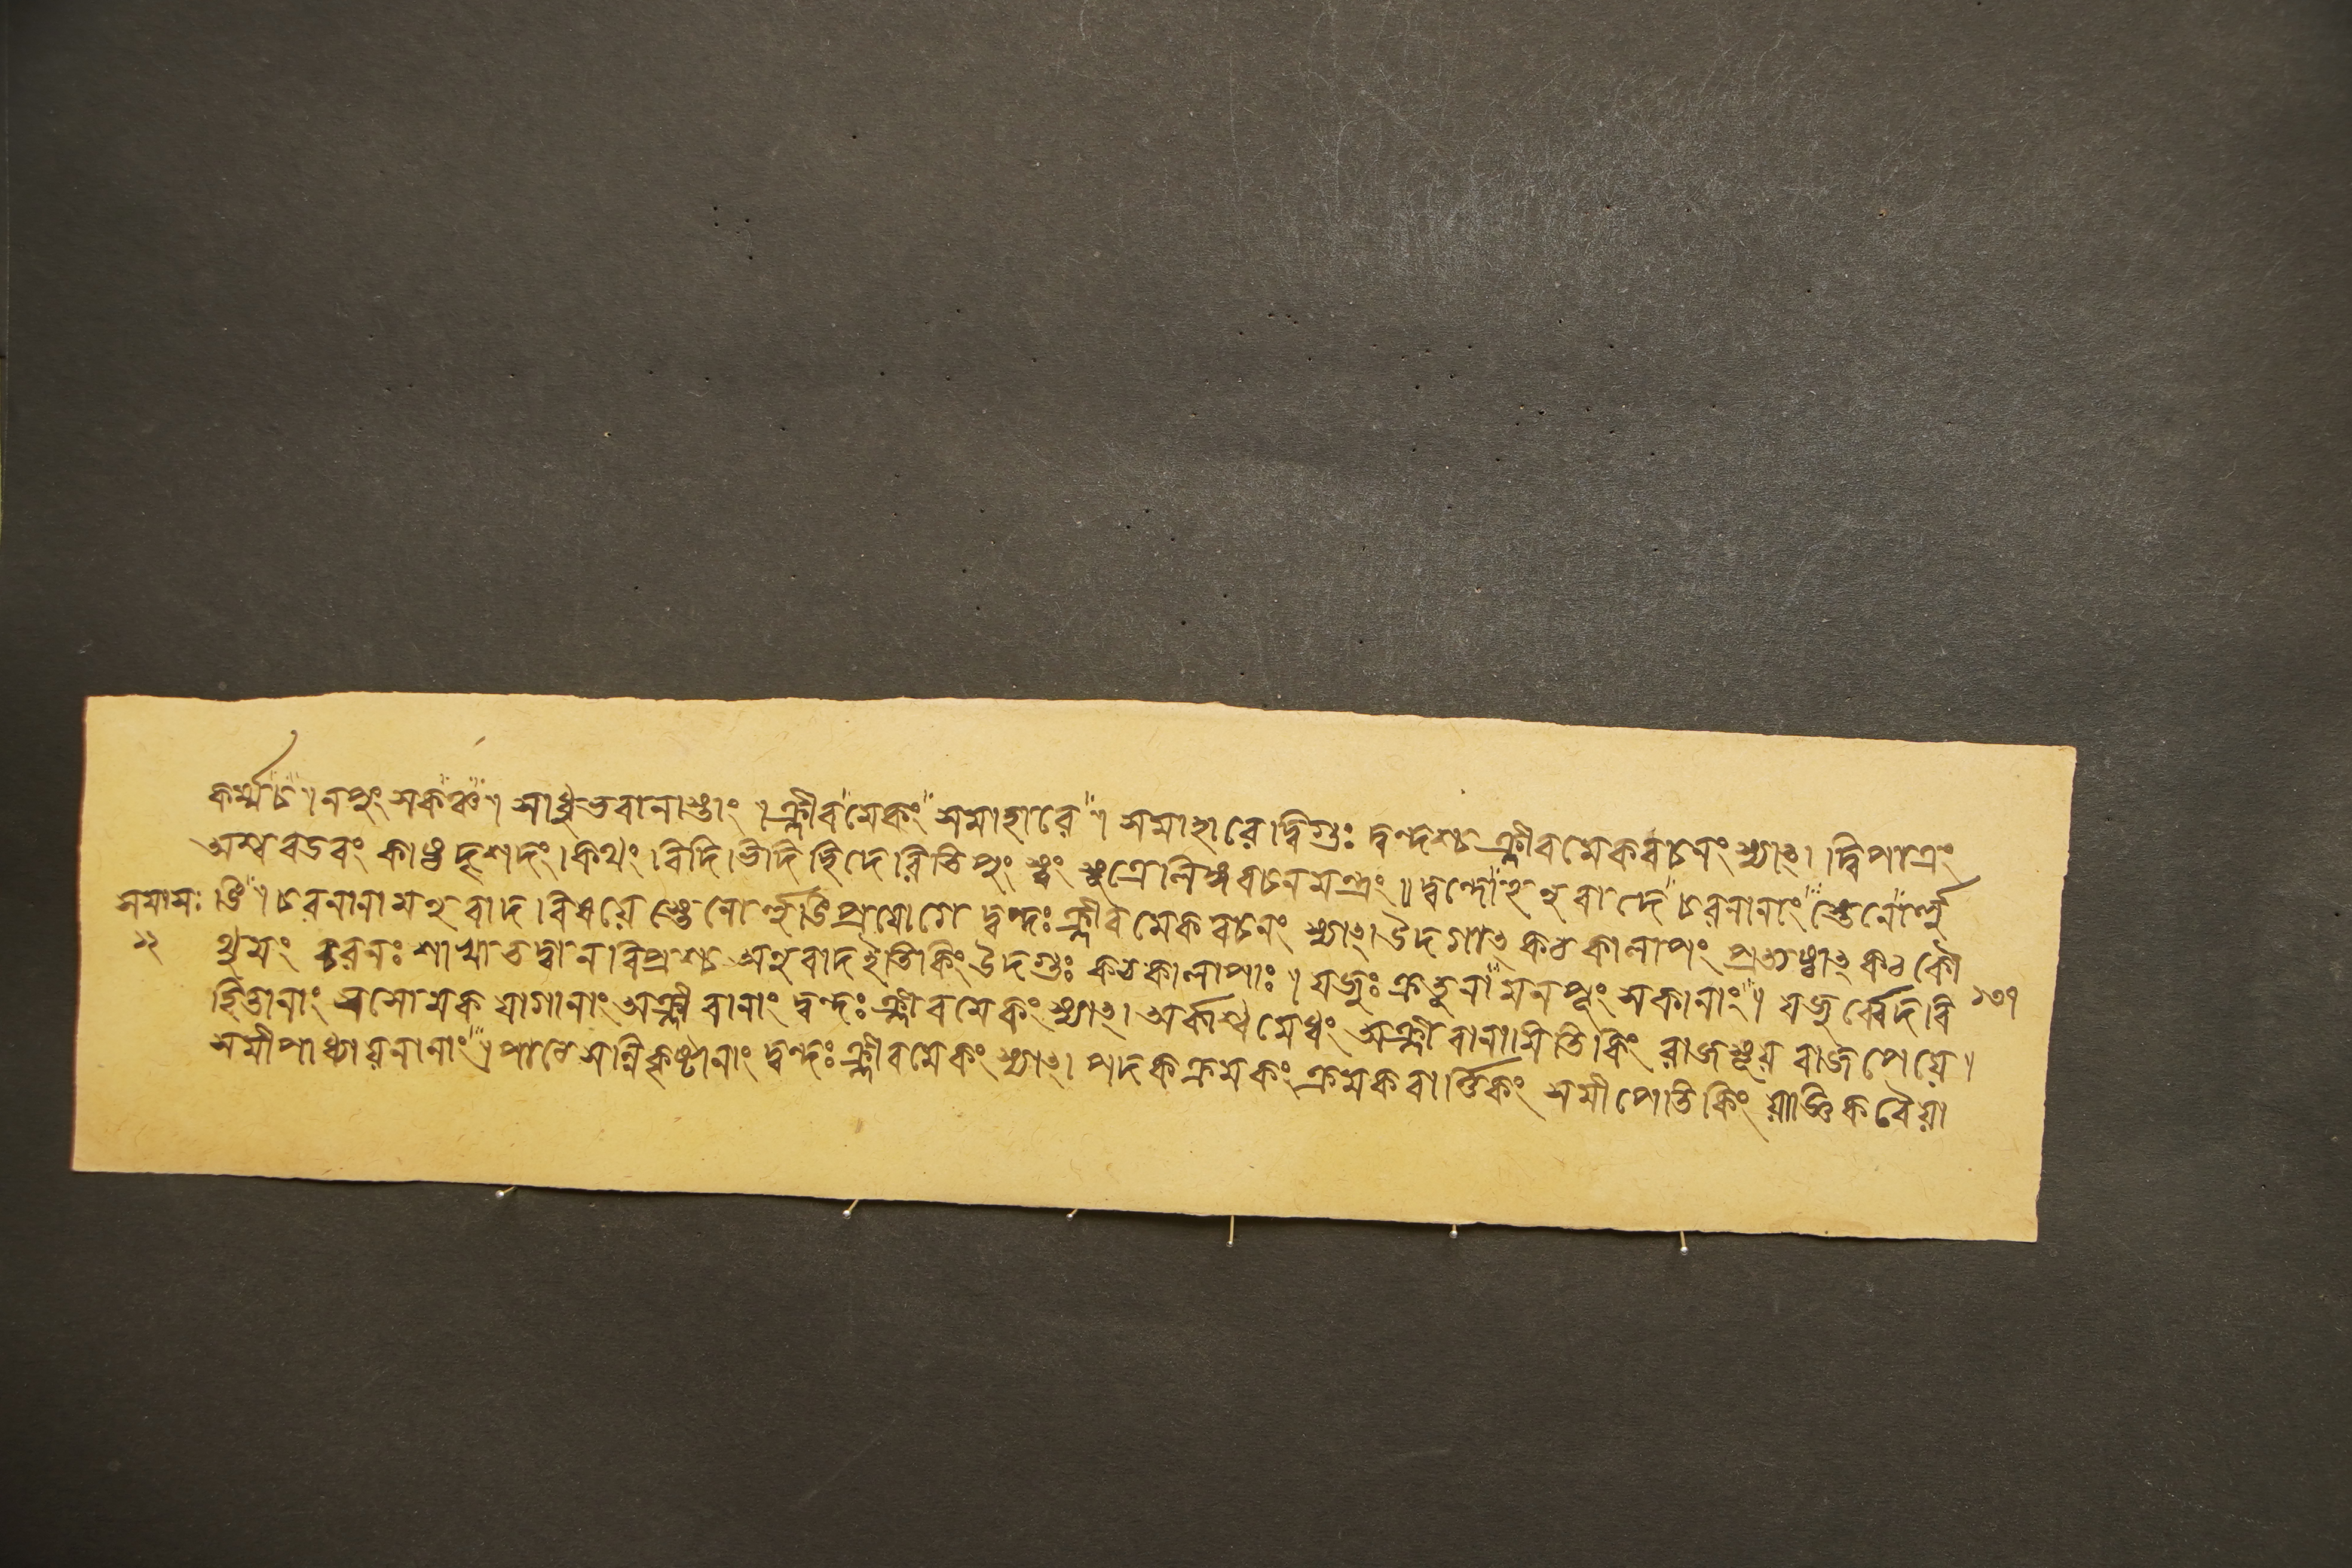 কর্ম্ম চ"৷ নপুং সকঞ্চ"৷ সাধুভবানাস্তাং ৷ ক্লীব"মেকং" সমাহারে"৷ সমাহারে দ্বিগুঃ দ্বন্দশ্চ ক্লীবমেকবচনং স্যাৎ৷ দ্বিপাত্রং
অশ্ব বডবং কাষ্ঠ দৃশদং৷ কথং বিদি ভিদি ছিদেরিতি পুং স্ত্বং সুত্রে লিঙ্গবচনমতন্ত্রং ॥ দ্বন্দো"ঽনুবাদে" চরনানাং" স্তেনোর্লু
সমাসঃ ঙি"৷ চরনানামনুবাদ বিষয়ে স্তেনোর্লুঙি প্রযোগে দ্বন্দঃ ক্লীবমেকবচনং স্যাৎ৷ উদগাৎ কঠকালাপং প্রত্যষ্ঠাৎ কঠকৌ
১২ থুমং চরনঃ শাখা তদ্বান বিপ্রশ্চ অনুবাদইতি কিং উদগুঃ কঠকালাপাঃ ৷ যজুঃ ক্রতুনা"মনপুং সকানাং"৷ যজুর্ব্বেদবি ১৩৭
হিতানাং সসোমক যাগানাং অক্লীবানাং দ্বন্দঃ ক্লীবমেকং স্যাৎ৷ অর্কাশ্বমেধং অক্লীবানামিতি কিং রাজসূয় বাজপেয়ে৷
সমীপাধ্যায়নানাং"৷ পাঠে সন্নিকৃষ্টানাং দ্বন্দঃ ক্লীবমেকং স্যাৎ৷ পদকক্রমকং ক্রমকবার্ত্তিকং সমীপেতি কিং যাজ্ঞিকবৈয়া